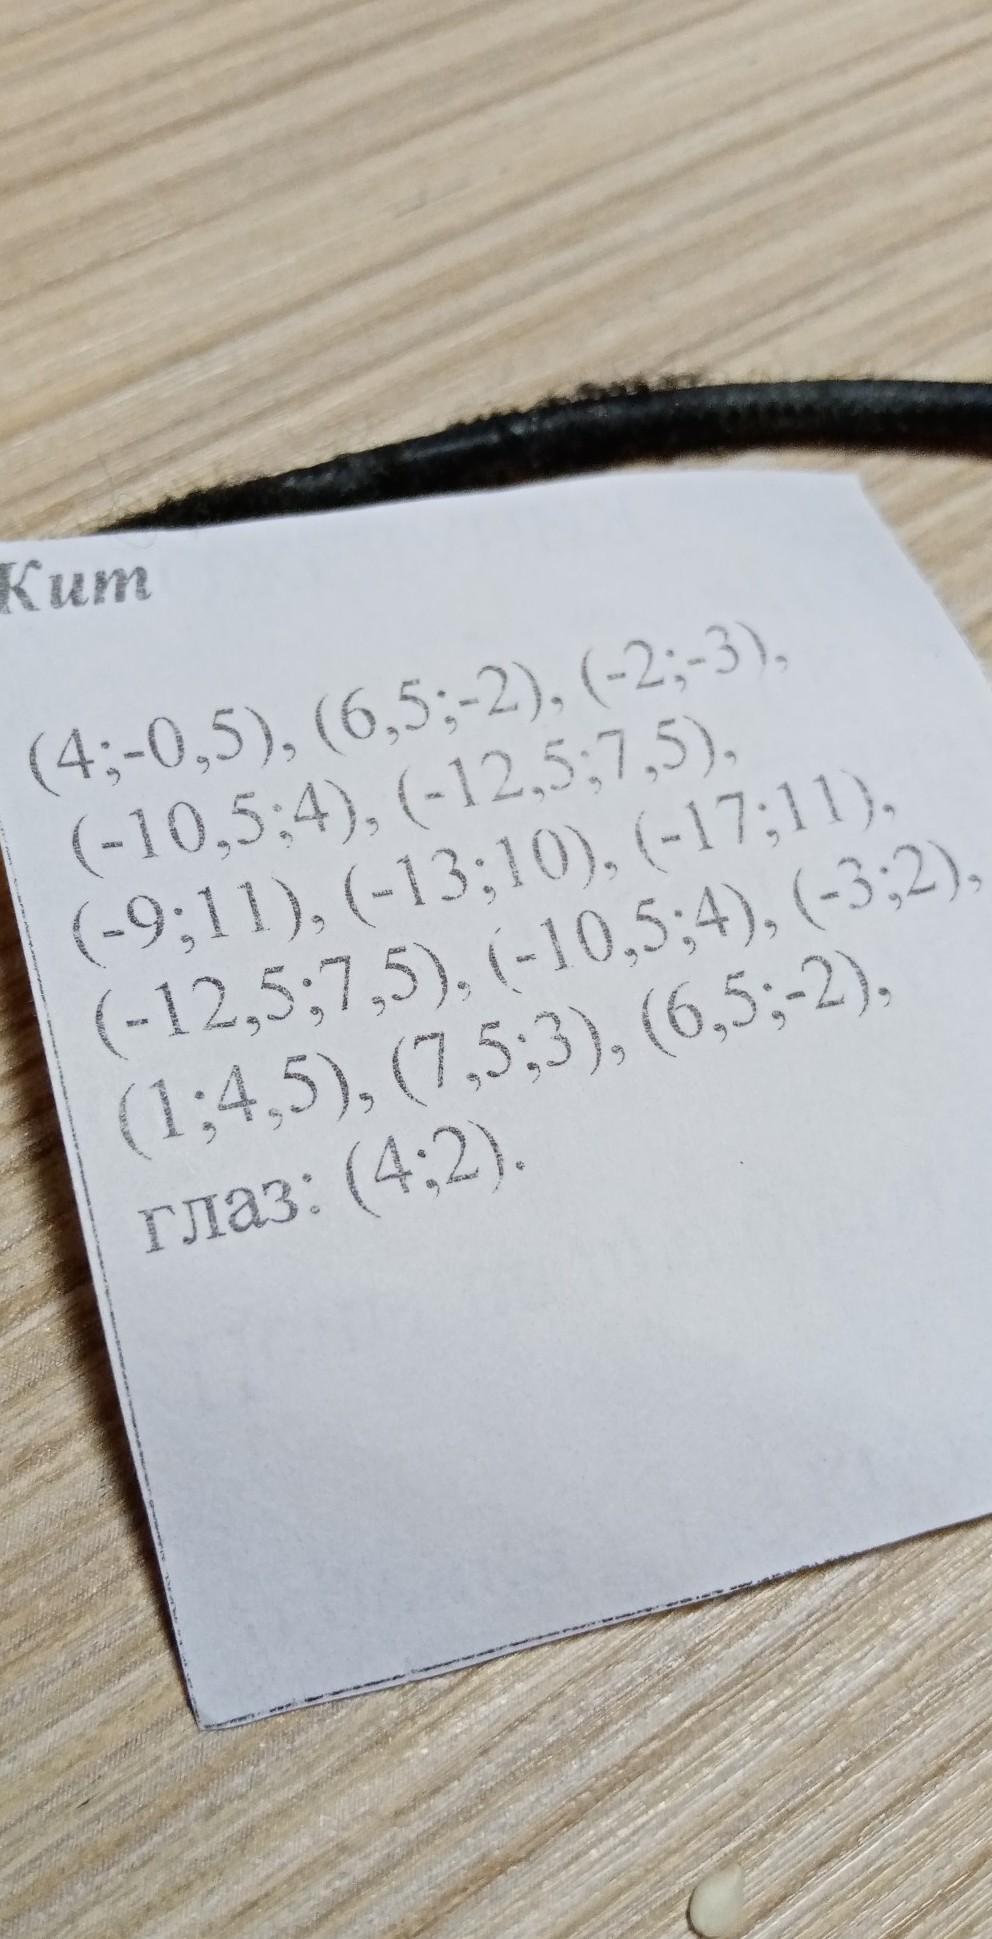 Кит
(4;-0,5), (6,5;-2), (-2;-3),
(-10,5;4), (-12,5;7,5),
(-9;11), (-13;10), (-17;11),
(-12,5;7,5), (-10,5;4), (-3;2),
(1;4,5), (7,5;3), (6,5;-2),
глаз: (4;2).